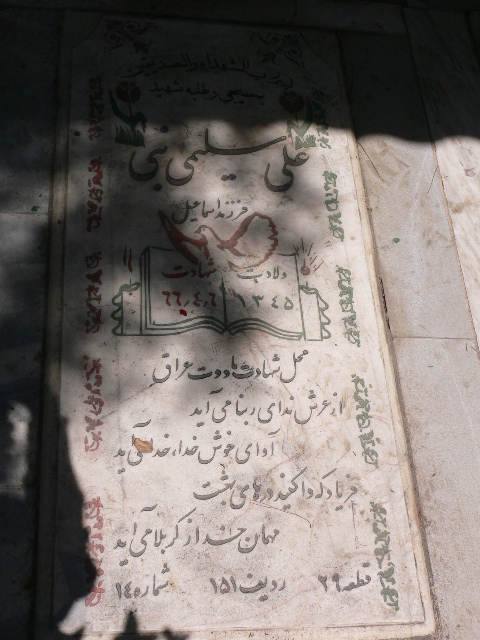 بسم رب الشهداء والصدیقین
بسیجی و طلبه شهید
علی سلیمی نبی
فرزند اسماعیل
ولادت شهادت
۱۳۴۵ ۶۶٫۴٫۶
محل شهادت ماووت عراق
از عرش ندای ربنا می آید
آوای خوش خدا، خدا می آید
فریاد که وا کنید درهای بهشت
مهمان خدا از کربلا می آید
قطعه ۲۹ ردیف ۱۵۱ شماره ۱۴